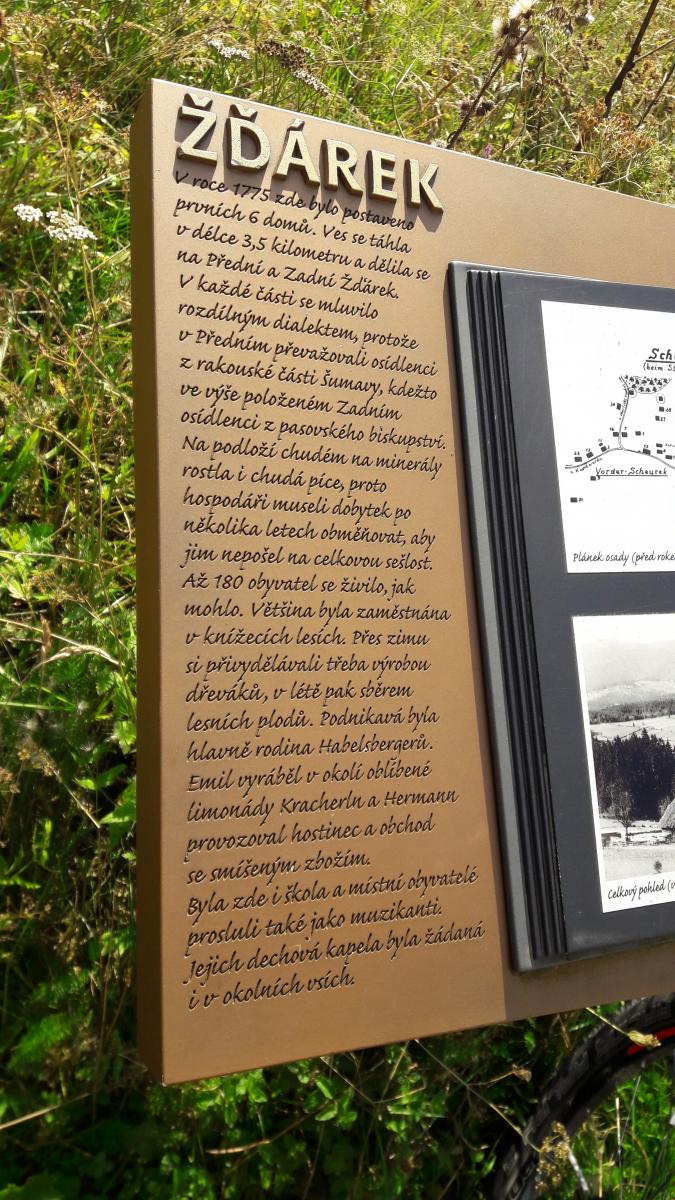 ŽĎÁREK
V roce 1775 zde bylo postaveno
prvních 6 domů. Ves se táhla
v délce 3,5 kilometru a dělila se
na Přední a Zadní Žďárek.
V každé části se mluvilo
rozdílným dialektem, protože
v Předním převažovali osídlenci
z rakouské části Šumavy, kdežto
ve výše položeném Zadním
osídlenci z pasovského biskupství.
Na podloží chudém na minerály
rostla i chudá píce, proto
hospodáři museli dobytek po
několika letech obměňovat, aby
jim nepošel na celkovou sešlost.
Až 180 obyvatel se živilo, jak
mohlo. Většina byla zaměstnána
v knížecích lesích. Přes zimu
si přivydělávali třeba výrobou
dřeváků, v létě pak sběrem
lesních plodů. Podnikavá byla
hlavně rodina Habelsbergerů.
Emil vyráběl v okolí oblíbené
limonády Kracherln a Hermann
provozoval hostinec a obchod
se smíšeným zbožím.
Byla zde i škola a místní obyvatelé
prosluli také jako muzikanti.
Jejich dechová kapela byla žádaná
i v okolních vsích.
Vorder-Scheurek
Plánek osady (před
Celkový pohled